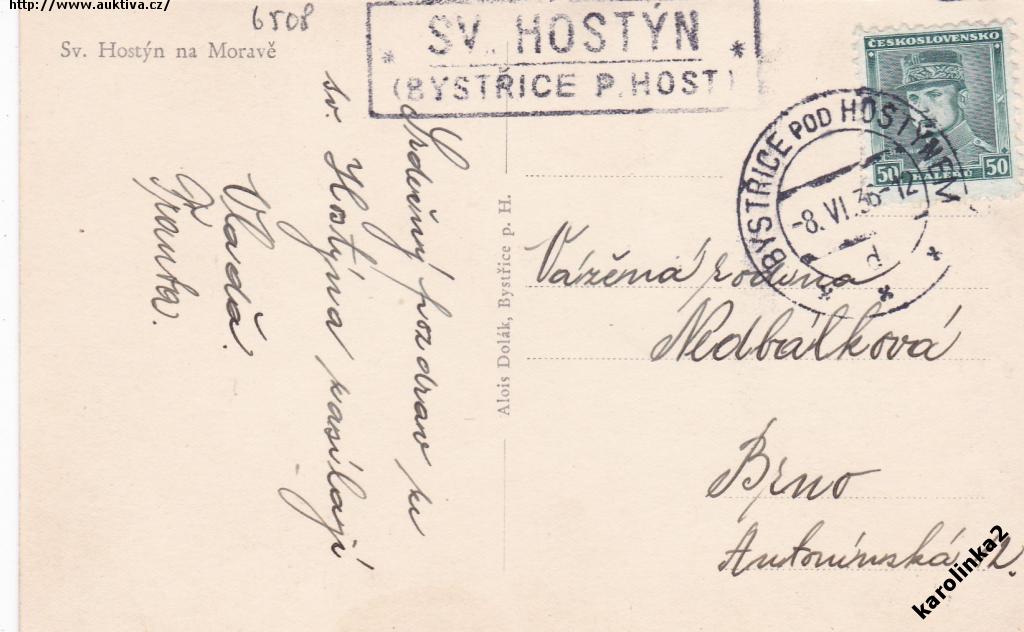 http://www.auktiva.cz/
6508
Sv. Hostýn na Moravě
* SV. HOSTÝN *
(BYSTŘICE P. HOST)
ČESKOSLOVENSKO
50 HALÉŘŮ 50
BYSTŘICE POD HOSTÝNEM
-8.VI.36-12
d
* * *
Srdečný pozdrav ze
sv. Hostýna zasílají
Vlaďa.
Franta.
Alois Dolák, Bystřice p. H.
Vážená rodina
Nedbálková
Brno
Antonínská 2.
karolinka2